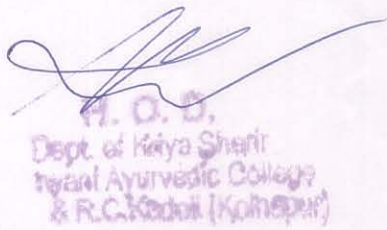 H. O. D.
Dept. of Kriya Sharir
Ayurvedic College
& R.C. Kodoli (Kolhapur)